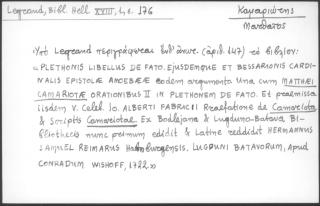 Legrand, Bibl. Hell. XVIII, 1, σ. 176
Καμαριώτης
Ματθαῖος
Ὑπὸ Legrand περιγράφεται ἐνθ' ἀνωτ. (ἀριθ. 147) τὸ βιβλίον:
«PLETHONIS LIBELLUS DE FATO. EJUSDEMQUE ET BESSARIONIS CARDI-
NALIS EPISTOLÆ AMOEBÆÆ eodem argumento una cum MATTHÆI
CAMARIOTÆ ORATIONIBUS II IN PLETHONEM DE FATO. Et præmissa
iisdem V. Celeb. Io. ALBERTI FABRICII Præfatione de Camariota
& scriptis Camariotæ. Ex Bodlejana & Lugduno-Batava BI-
bliothecis nunc primum edidit & Latine reddidit HERMANNUS
SAMUEL REIMARUS Hamburgensis. LUGDUNI BATAVORUM, apud
CONRADUM WISHOFF, 1722.»